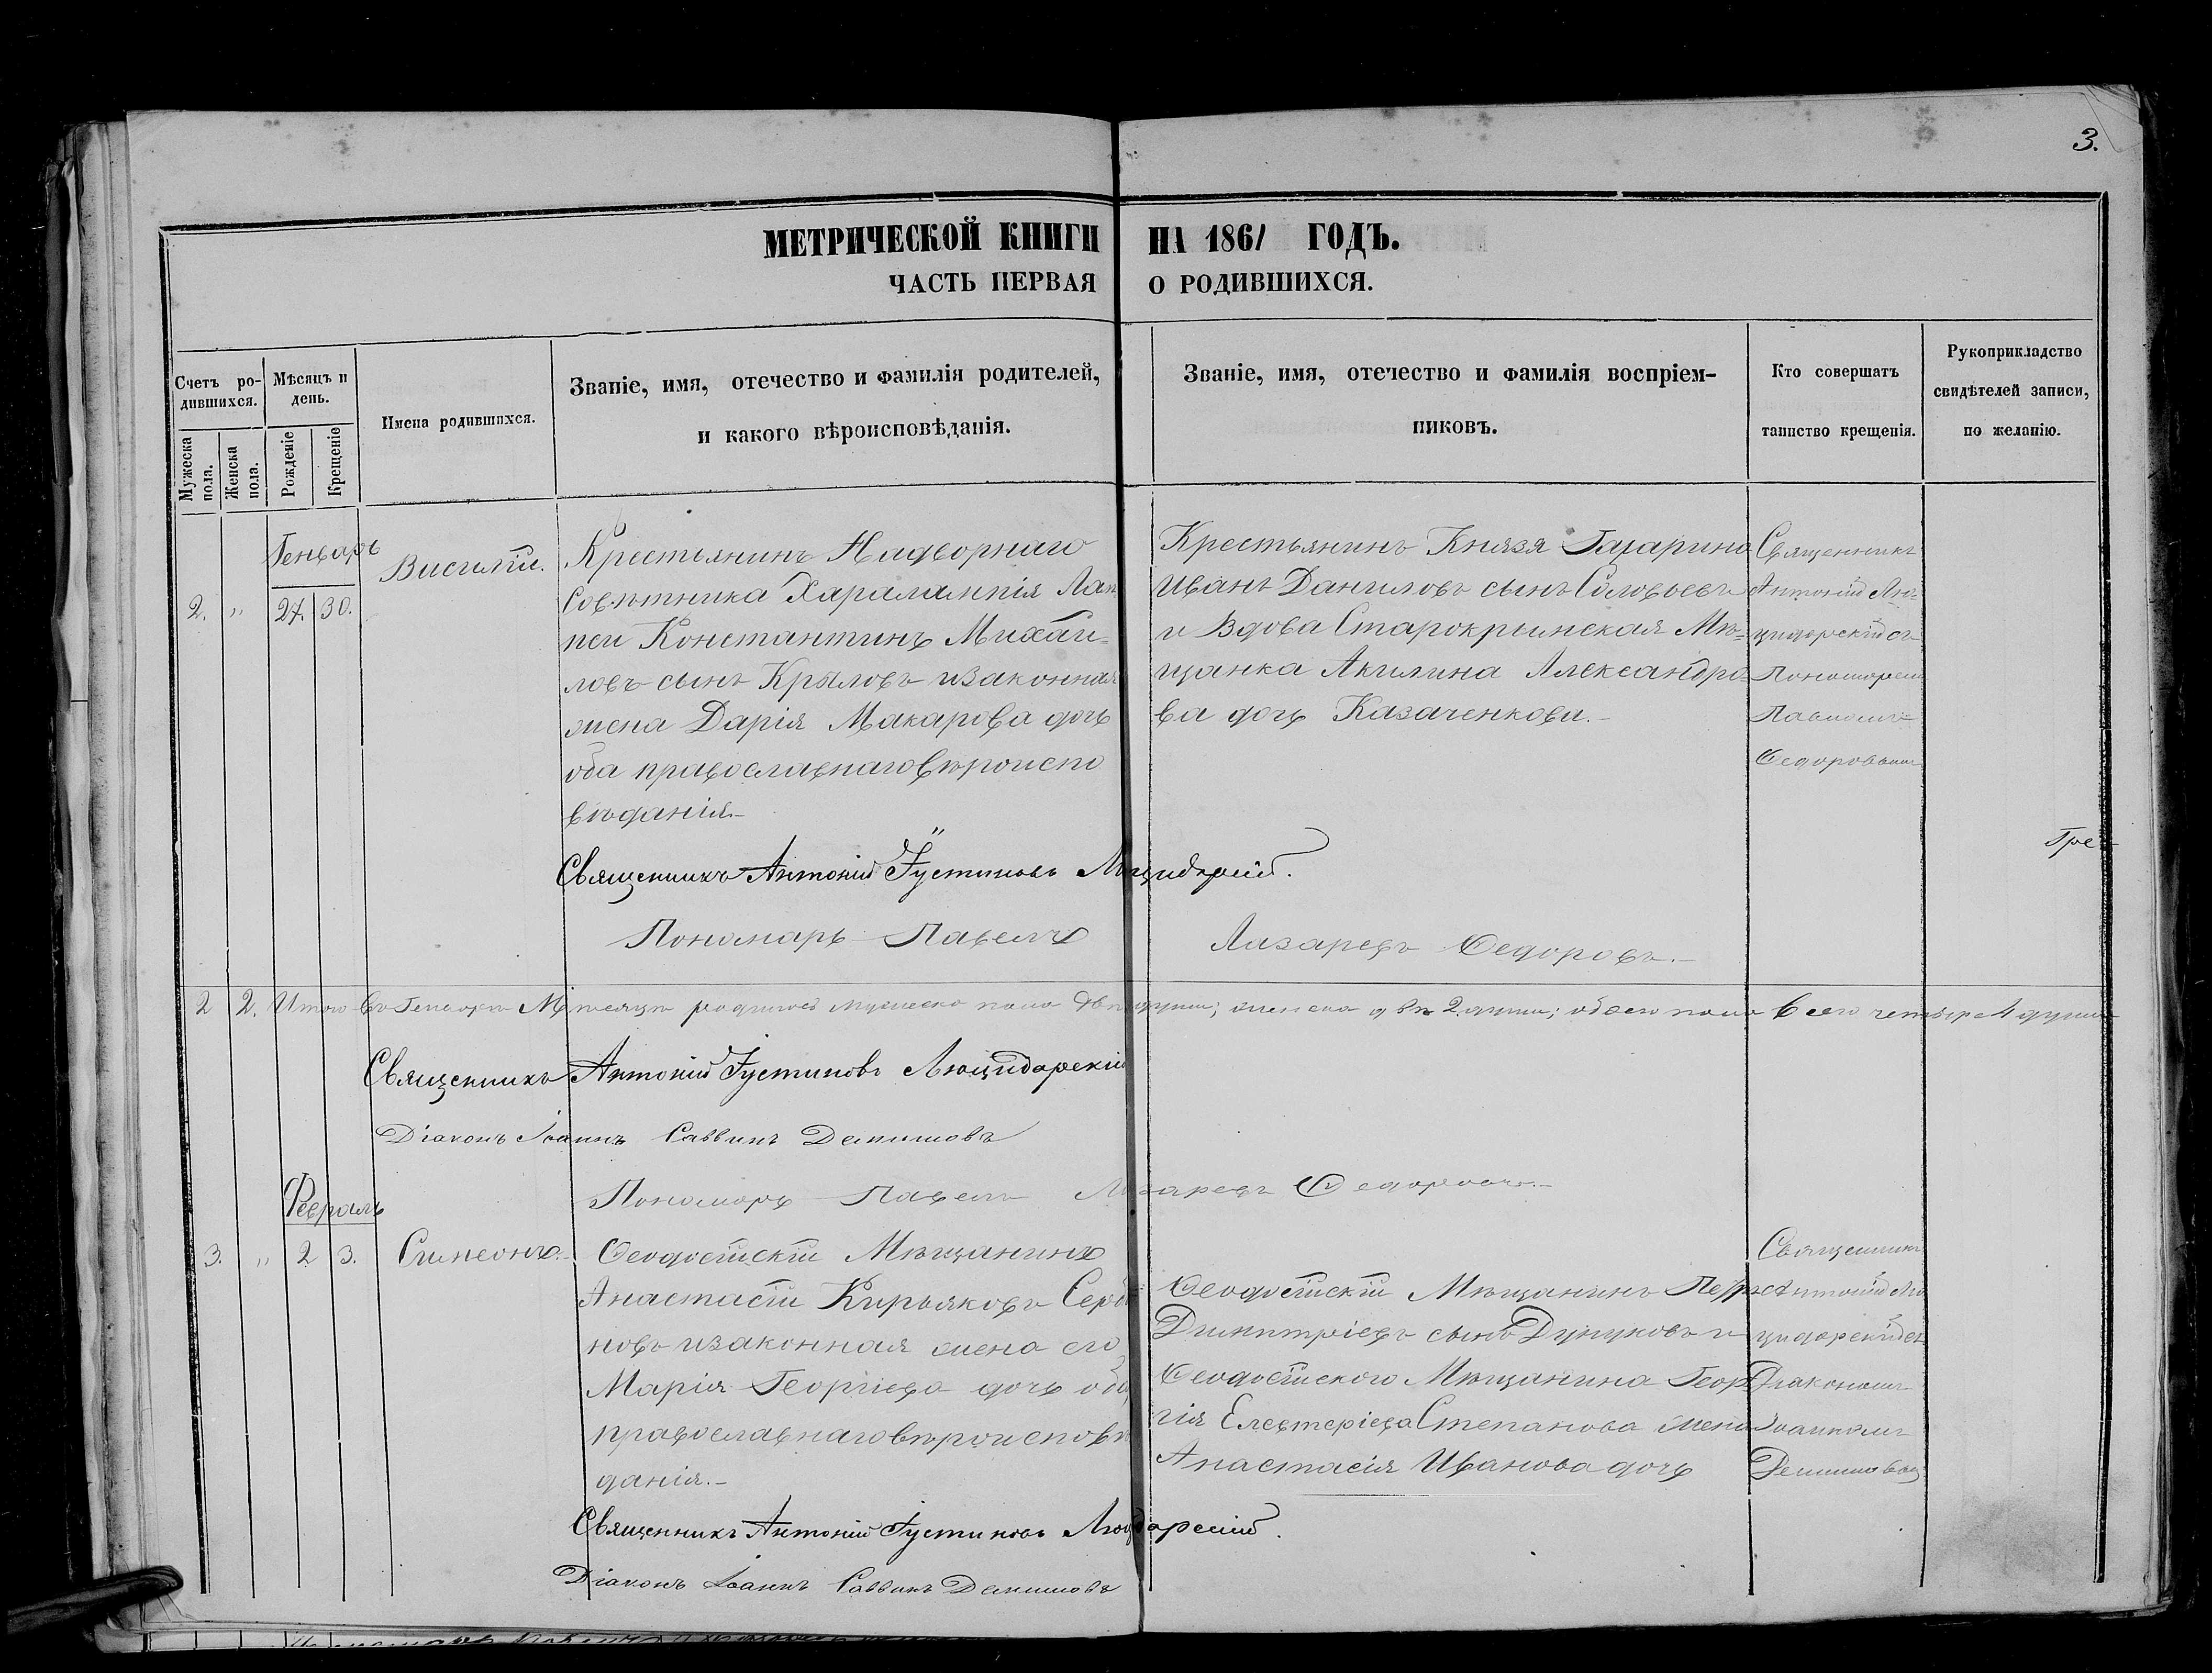 3.
МЕТРИЧЕСКОЙ КНИГИ НА 1861 ГОДЪ.
ЧАСТЬ ПЕРВАЯ О РОДИВШИХСЯ.
Счетъ ро-
дившихся.
Мужеска пола.
Женска пола.
Мѣсяцъ и
день.
Рожденіе
Крещеніе
Имена родившихся.
Званіе, имя, отечество и фамилія родителей,
и какого вѣроисповѣданія.
Званіе, имя, отечество и фамилія воспріем-
никовъ.
Кто совершатъ
таинство крещенія.
Рукоприкладство
свидѣтелей записи,
по желанію.
Генварь
2. " 27. 30.
Василій.
Крестьянинъ Надворнаго
Совѣтника Харалампія Лап
пеи Константинъ Михаи=
ловъ сынъ Крыловъ изаконная
жена Дарія Макарова дочь
оба православнаго вѣроиспо
вѣданія.-
Крестьянинъ Князя Гагарина
Иванъ Даниловъ сынъ Соловьевъ
и Вдова Старокрымская Мѣ=
щанка Акилина Александро=
ва дочь Казаченкова.-
Священникъ
Антоній Лю=
цидарскій съ
Пономарем
Павломъ
Ѳедоровымъ
Гре-
Священникъ Антоній Іустиновъ Люцидарскій.
Пономарь Павелъ Лазаревъ Ѳедоровъ.-
2 2. Итого въ Генварѣ Мѣсяцѣ родилось мужеска пола двѣ души; женска двѣ 2 души; обоего пола всего четыре 4 души
Священникъ Антоній Іустиновъ Люцидарскій
Діаконъ Іоаннъ Саввинъ Демишовъ
Пономарь Павелъ Лазаревъ Ѳедоровъ.-
Февраль
3. " 2 3.
Симеонъ.-
Ѳеодосійскій Мѣщанинъ
Анастасій Кирьяковъ Серб
новъ изаконная жена его
Марія Георгіева дочь оба
православнаго вѣроисповѣ
данія.-
Ѳеодосійскій Мѣщанинъ Петръ
Димитріевъ сынъ Дунуковъ и
Ѳеодосійского Мѣщанина Геор
гія Елевтеріева Степанова жена
Анастасія Иванова дочь
Священникъ
Антоній Лю
цидарскій съ
Діакономъ
Іоанномъ
Демишовым
Священникъ Антоній Іустиновъ Люцидарскій.
Діаконъ Іоаннъ Саввинъ Демишовъ